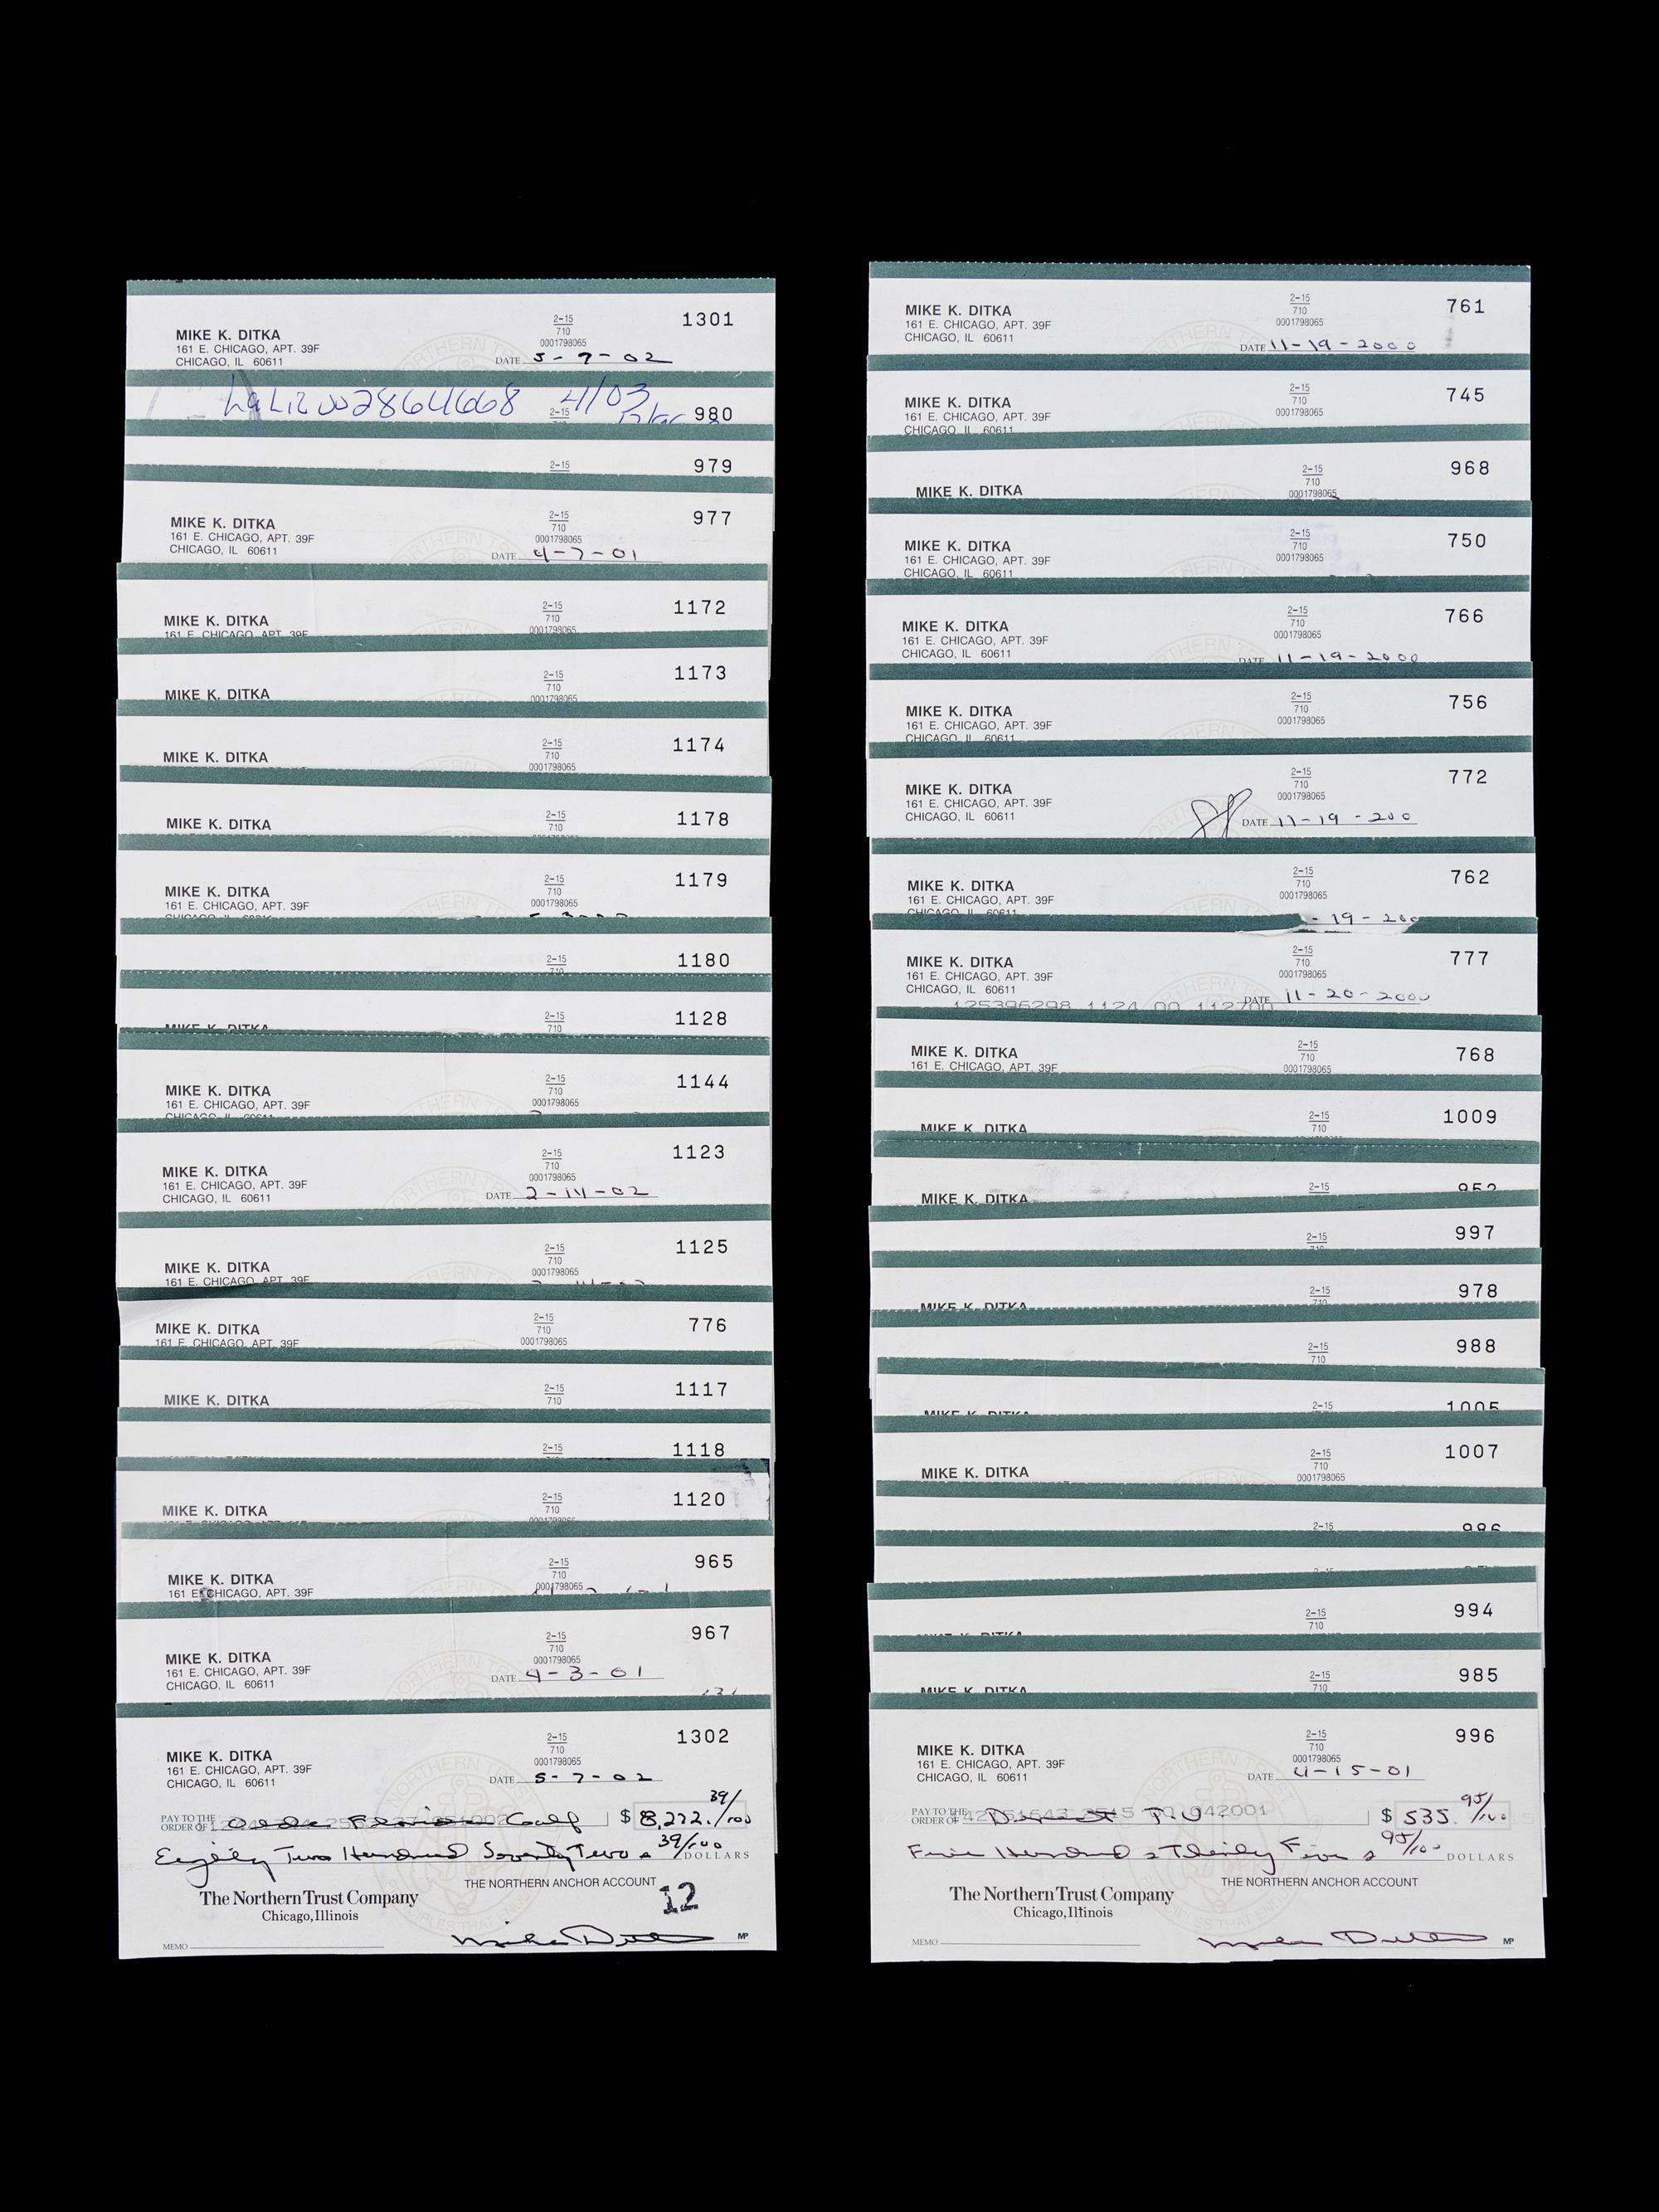 MIKE K. DITKA
161 E. CHICAGO, APT. 39F
CHICAGO, IL 60611
2-15
710
0001798065
1301
DATE 5-7-02
4/03
2-15
980
2-15
979
MIKE K. DITKA
161 E. CHICAGO, APT. 39F
CHICAGO, IL 60611
2-15
710
0001798065
977
DATE 4-7-01
MIKE K. DITKA
161 E. CHICAGO, APT. 39F
2-15
710
0001798065
1172
MIKE K. DITKA
2-15
710
0001798065
1173
MIKE K. DITKA
2-15
710
0001798065
1174
MIKE K. DITKA
2-15
710
1178
MIKE K. DITKA
161 E. CHICAGO, APT. 39F
2-15
710
0001798065
1179
2-15
710
1180
MIKE K. DITKA
2-15
710
1128
MIKE K. DITKA
161 E. CHICAGO, APT. 39F
CHICAGO, IL 60611
2-15
710
0001798065
1144
MIKE K. DITKA
161 E. CHICAGO, APT. 39F
CHICAGO, IL 60611
2-15
710
0001798065
1123
DATE 2-14-02
MIKE K. DITKA
161 E. CHICAGO, APT. 39F
2-15
710
0001798065
1125
MIKE K. DITKA
161 E. CHICAGO, APT. 39F
2-15
710
0001798065
776
MIKE K. DITKA
2-15
710
1117
2-15
1118
MIKE K. DITKA
2-15
710
1120
MIKE K. DITKA
161 E. CHICAGO, APT. 39F
2-15
710
0001798065
965
MIKE K. DITKA
161 E. CHICAGO, APT. 39F
CHICAGO, IL 60611
2-15
710
0001798065
967
DATE 4-3-01
MIKE K. DITKA
161 E. CHICAGO, APT. 39F
CHICAGO, IL 60611
2-15
710
0001798065
1302
DATE 5-7-02
PAY TO THE
ORDER OF Golf $ 8,272. 39/100
Eighty Two Hundred Seventy Two & 39/100 DOLLARS
THE NORTHERN ANCHOR ACCOUNT
12
The Northern Trust Company
Chicago, Illinois
MEMO
Mike Ditka
MP
MIKE K. DITKA
161 E. CHICAGO, APT. 39F
CHICAGO, IL 60611
2-15
710
0001798065
761
DATE 11-19-2000
MIKE K. DITKA
161 E. CHICAGO, APT. 39F
CHICAGO, IL 60611
2-15
710
0001798065
745
MIKE K. DITKA
2-15
710
0001798065
968
MIKE K. DITKA
161 E. CHICAGO, APT. 39F
CHICAGO, IL 60611
2-15
710
0001798065
750
MIKE K. DITKA
161 E. CHICAGO, APT. 39F
CHICAGO, IL 60611
2-15
710
0001798065
766
DATE 11-19-2000
MIKE K. DITKA
161 E. CHICAGO, APT. 39F
CHICAGO, IL 60611
2-15
710
0001798065
756
MIKE K. DITKA
161 E. CHICAGO, APT. 39F
CHICAGO, IL 60611
2-15
710
0001798065
772
DATE 11-19-200
MIKE K. DITKA
161 E. CHICAGO, APT. 39F
CHICAGO, IL 60611
2-15
710
0001798065
762
-19-200
MIKE K. DITKA
161 E. CHICAGO, APT. 39F
CHICAGO, IL 60611
2-15
710
0001798065
777
DATE 11-20-2000
125396298 1124 00 112700
MIKE K. DITKA
161 E. CHICAGO, APT. 39F
2-15
710
0001798065
768
MIKE K. DITKA
2-15
710
1009
MIKE K. DITKA
2-15
952
2-15
997
MIKE K. DITKA
2-15
710
978
2-15
710
988
MIKE K. DITKA
2-15
1005
MIKE K. DITKA
2-15
710
0001798065
1007
2-15
986
2-15
710
994
MIKE K. DITKA
2-15
710
985
MIKE K. DITKA
161 E. CHICAGO, APT. 39F
CHICAGO, IL 60611
2-15
710
0001798065
996
DATE 4-15-01
PAY TO THE
ORDER OF Direct T.V $ 535. 95/100
Five Hundred & Thirty Five & 95/100 DOLLARS
THE NORTHERN ANCHOR ACCOUNT
The Northern Trust Company
Chicago, Illinois
MEMO
Mike Ditka
MP